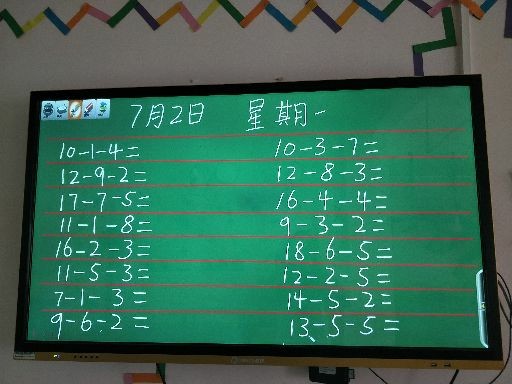 7月2日 星期一
10-1-4= 10-3-7=
12-9-2= 12-8-3=
17-7-5= 16-4-4=
11-1-8= 9-3-2=
16-2-3= 18-6-5=
11-5-3= 12-2-5=
7-1-3= 14-5-2=
9-6-2= 13-5-5=